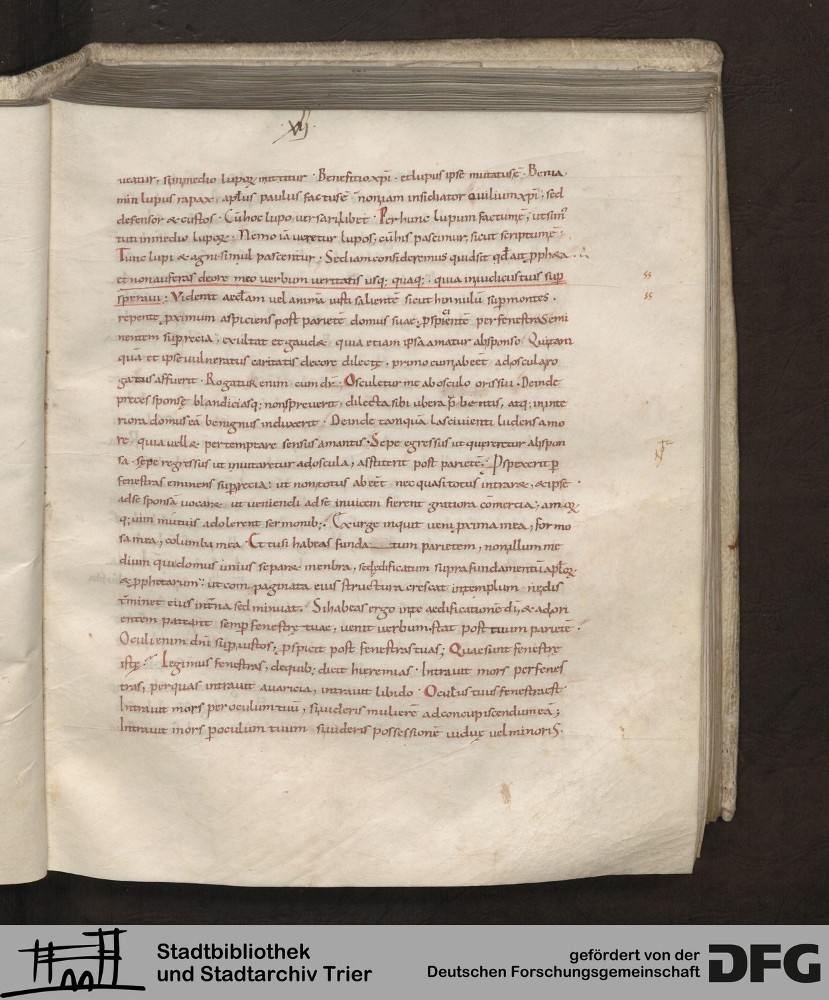 .xvij.
ueatur, si in medio lupoꝝ mittitur . Benefitio xp̄i . et lupus ipse mutatus ē . Benia
min lupus rapax, apłus paulus factus ē non iam insidiator ouilium xp̄i ; sed
defensor & custos . Cū hoc lupo uersari libet . Per hunc lupum factum ē, ut sim
tuti in medio lupoꝝ . Nemo iā ueretur lupos, cū his pascimur, sicut scriptum ē ;
Tunc lupi & agni simul pascentur . Sed iam consideremus quid sit qđ ait ꝓpheta
et non auferas de ore meo uerbum ueritatis usq; quaq; . quia in iudiciis tuis sup
speraui ; Videñt aeccłam uel animā iusti salientē sicut hinnulū sup montes .
repente ꝓximum aspiciens post parietē domus suae, ꝓspicientē per fenestras emi
nentem sup recia ; exultat et gaudæ quia etiam ipsa amatur ab sponso Qui tam
quā et ipse uulneratus caritatis decore dilectę, primo cum abeēt ad oscula ro
gatus affuerit . Rogatur enim cum dr̄ . Osculetur me ab osculo oris sui . Deinde
preces sponsę blandiciasq; non spreuerit, dilecta sibi ubera p̄bentis, atq; in inte
riora domus eā benignus induxerit . Deinde tamquā lasciuienti ludens amo
re quia uellæ pertemptare sensus amantis . Sepe egressus ut quereretur ab spon
sa . sepe regressus ut inuitaretur ad oscula, asstiterit post parietē ; Ꝓspexerit ꝑ
fenestras eminens sup recia ; ut non totus abeēt nec quasi totus intraræ, & ipse
ad se sponsā uocaræ ut ueniendi ad se inuicem fierent gratiora cōmercia ; amoꝝ
q; uim mutuis adolerent sermonib; . Exurge inquit ueni proxima mea, formo
sa mea, columba mea . Et tu si habeas fundatum parietem, non illum me
dium qui domus unius separaræ menbra, sed ędificatum supra fundamentū apłoꝝ
& ꝓphetarum ; ut compaginata eius structura crescat in templum
ei us sed minuat . Si habeas ergo in te aedificationē dī, & ad ori
entem pateant semꝑ fenestrę tuae, uenit uerbum . stat post tuum parietē .
Oculi enim dn̄i sup iustos ; ꝓspicit post fenestras tuas ; Quae sunt fenestrę
istę ; Legimus fenestras, de quib; dicit hieremias . Intrauit mors per fenes
tras, per quas intrauit auaricia, intrauit libido . Oculus tuus fenestra est
Intrauit mors per oculum tuū, si uideris mulierē ad concupiscendum eā ;
Intrauit mors ꝑ oculum tuum si uideris possessionē uiduę uel minoris .
ss
ss
Stadtbibliothek
und Stadtarchiv Trier
gefördert von der
Deutschen Forschungsgemeinschaft
DFG